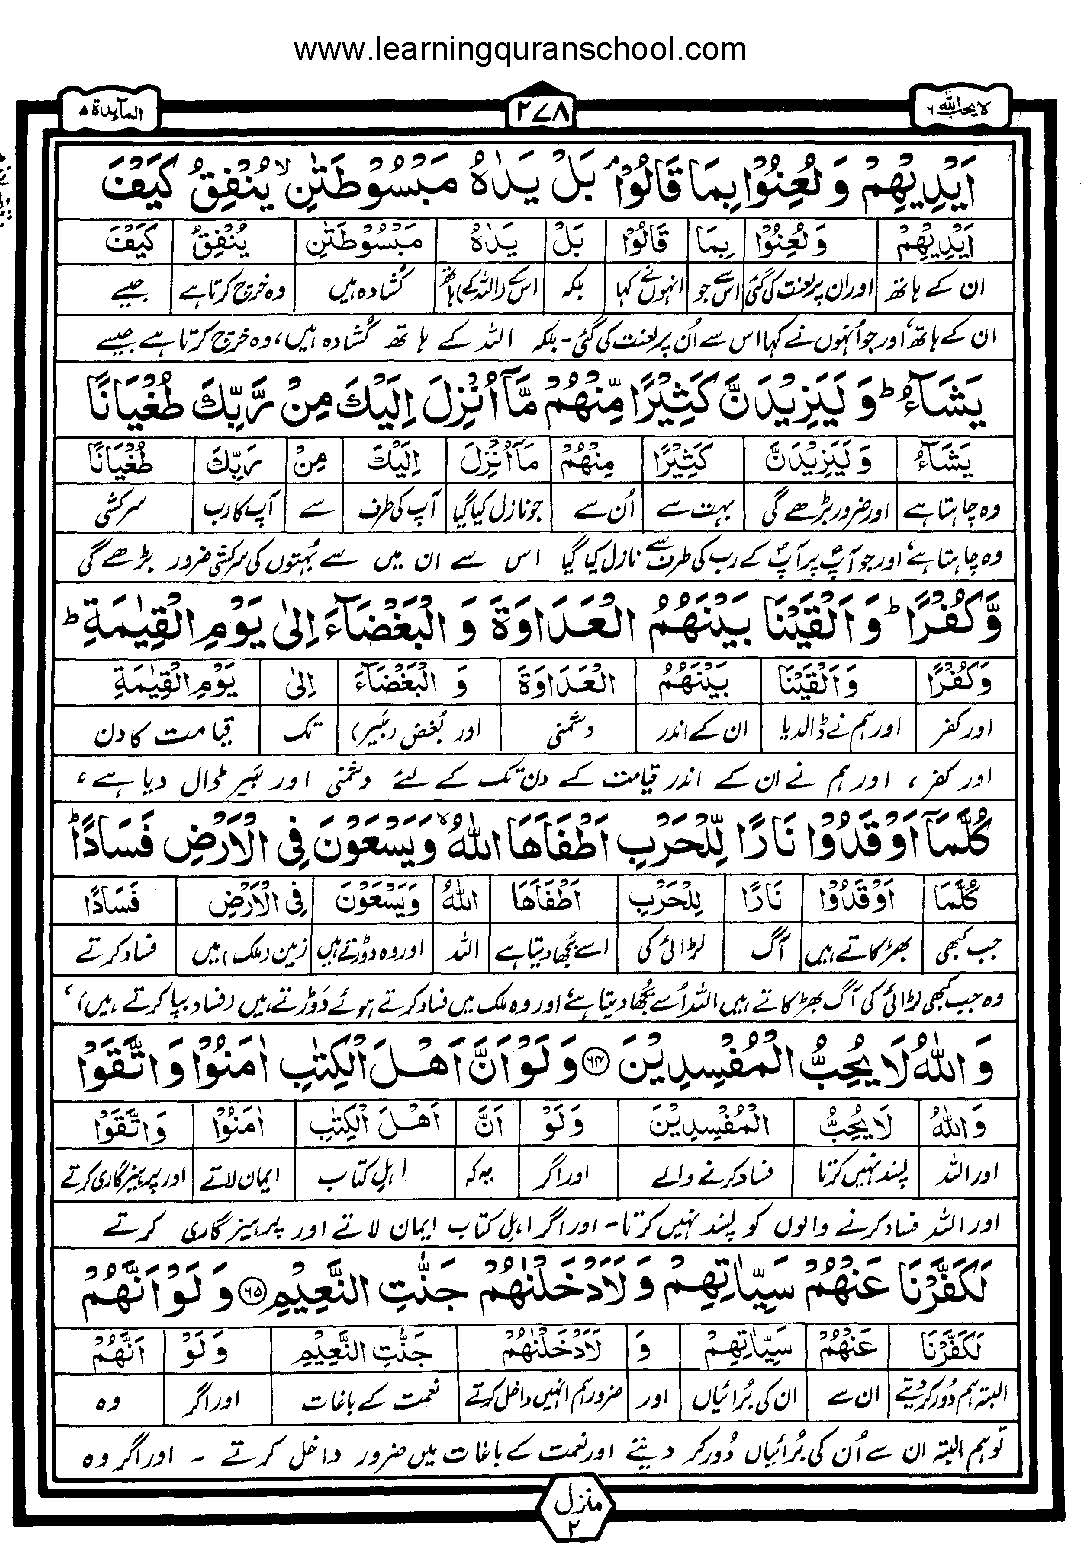 www.learningquranschool.com
لا یحب اللہ ۶
۲۷۸
المآىِٕدة ۵
اَیْدِیْهِمْ وَ لُعِنُوْا بِمَا قَالُوْا ۘ بَلْ یَدٰهُ مَبْسُوْطَتٰنِ ۙ یُنْفِقُ كَیْفَ
اَیْدِیْهِمْ وَ لُعِنُوْا بِمَا قَالُوْا بَلْ یَدٰهُ مَبْسُوْطَتٰنِ یُنْفِقُ كَیْفَ
ان کے ہاتھ اور ان پر لعنت کی گئی اس سے جو انہوں نے کہا بلکہ اس کے (اللہ کے) ہاتھ کشادہ ہیں وہ خرچ کرتا ہے جیسے
ان کے ہاتھ، اور جو انہوں نے کہا اس سے اُن پر لعنت کی گئی - بلکہ اللہ کے ہاتھ کُشادہ ہیں، وہ خرچ کرتا ہے جیسے
یَشَآءُ ؕ وَ لَیَزِیْدَنَّ كَثِیْرًا مِّنْهُمْ مَّاۤ اُنْزِلَ اِلَیْكَ مِنْ رَّبِّكَ طُغْیَانًا
یَشَآءُ وَ لَیَزِیْدَنَّ كَثِیْرًا مِنْهُمْ مَاۤ اُنْزِلَ اِلَیْكَ مِنْ رَبِّكَ طُغْیَانًا
وہ چاہتا ہے اور ضرور بڑھے گی بہت سے اُن سے جو نازل کیا گیا آپ کی طرف سے آپ کا رب سرکشی
وہ چاہتا ہے، اور جو آپؐ پر آپؐ کے رب کی طرف سے نازل کیا گیا اس سے ان میں سے بہُتوں کی سرکشی ضرور بڑھے گی
وَّ كُفْرًا ؕ وَ اَلْقَیْنَا بَیْنَهُمُ الْعَدَاوَةَ وَ الْبَغْضَآءَ اِلٰى یَوْمِ الْقِیٰمَةِ ؕ
وَ كُفْرًا وَ اَلْقَیْنَا بَیْنَهُمُ الْعَدَاوَةَ وَ الْبَغْضَآءَ اِلٰى یَوْمِ الْقِیٰمَةِ
اور کفر اور ہم نے ڈالدیا ان کے اندر دشمنی اور بُغض (بَیر) تک قیامت کا دن
اور کفر، اور ہم نے ان کے اندر قیامت کے دن تک کے لئے دشمنی اور بَیر ڈال دیا ہے،
كُلَّمَاۤ اَوْقَدُوْا نَارًا لِّلْحَرْبِ اَطْفَاَهَا اللّٰهُ ۙ وَ یَسْعَوْنَ فِی الْاَرْضِ فَسَادًا ؕ
كُلَّمَا اَوْقَدُوْا نَارًا لِلْحَرْبِ اَطْفَاَهَا اللّٰهُ وَ یَسْعَوْنَ فِی الْاَرْضِ فَسَادًا
جب کبھی بھڑکاتے ہیں آگ لڑائی کی اسے بُجھا دیتا ہے اللہ اور وہ دوڑتے ہیں زمین (ملک) میں فساد کرتے
وہ جب کبھی لڑائی کی آگ بھڑکاتے ہیں اللہ اُسے بُجھا دیتا ہے اور وہ ملک میں فساد کرتے ہوئے دَوڑتے ہیں (فساد بپا کرتے ہیں)،
وَ اللّٰهُ لَا یُحِبُّ الْمُفْسِدِیْنَ ۶۴ وَ لَوْ اَنَّ اَهْلَ الْكِتٰبِ اٰمَنُوْا وَ اتَّقَوْا
وَ اللّٰهُ لَا یُحِبُّ الْمُفْسِدِیْنَ وَ لَوْ اَنَّ اَهْلَ الْكِتٰبِ اٰمَنُوْا وَ اتَّقَوْا
اور اللہ پسند نہیں کرتا فساد کرنے والے اور اگر یہ کہ اہلِ کتاب ایمان لاتے اور پرہیزگاری کرتے
اور اللہ فساد کرنے والوں کو پسند نہیں کرتا - اور اگر اہلِ کتاب ایمان لاتے اور پرہیزگاری کرتے
لَكَفَّرْنَا عَنْهُمْ سَیِّاٰتِهِمْ وَ لَاَدْخَلْنٰهُمْ جَنّٰتِ النَّعِیْمِ ۶۵ وَ لَوْ اَنَّهُمْ
لَكَفَّرْنَا عَنْهُمْ سَیِّاٰتِهِمْ وَ لَاَدْخَلْنٰهُمْ جَنّٰتِ النَّعِیْمِ وَ لَوْ اَنَّهُمْ
البتہ ہم دُور کر دیتے ان سے ان کی بُرائیاں اور ضرور ہم انہیں داخل کرتے نعمت کے باغات اور اگر وہ
تو ہم البتہ ان سے اُن کی بُرائیاں دُور کر دیتے اور نعمت کے باغات میں ضرور داخل کرتے - اور اگر وہ
منزل
۲